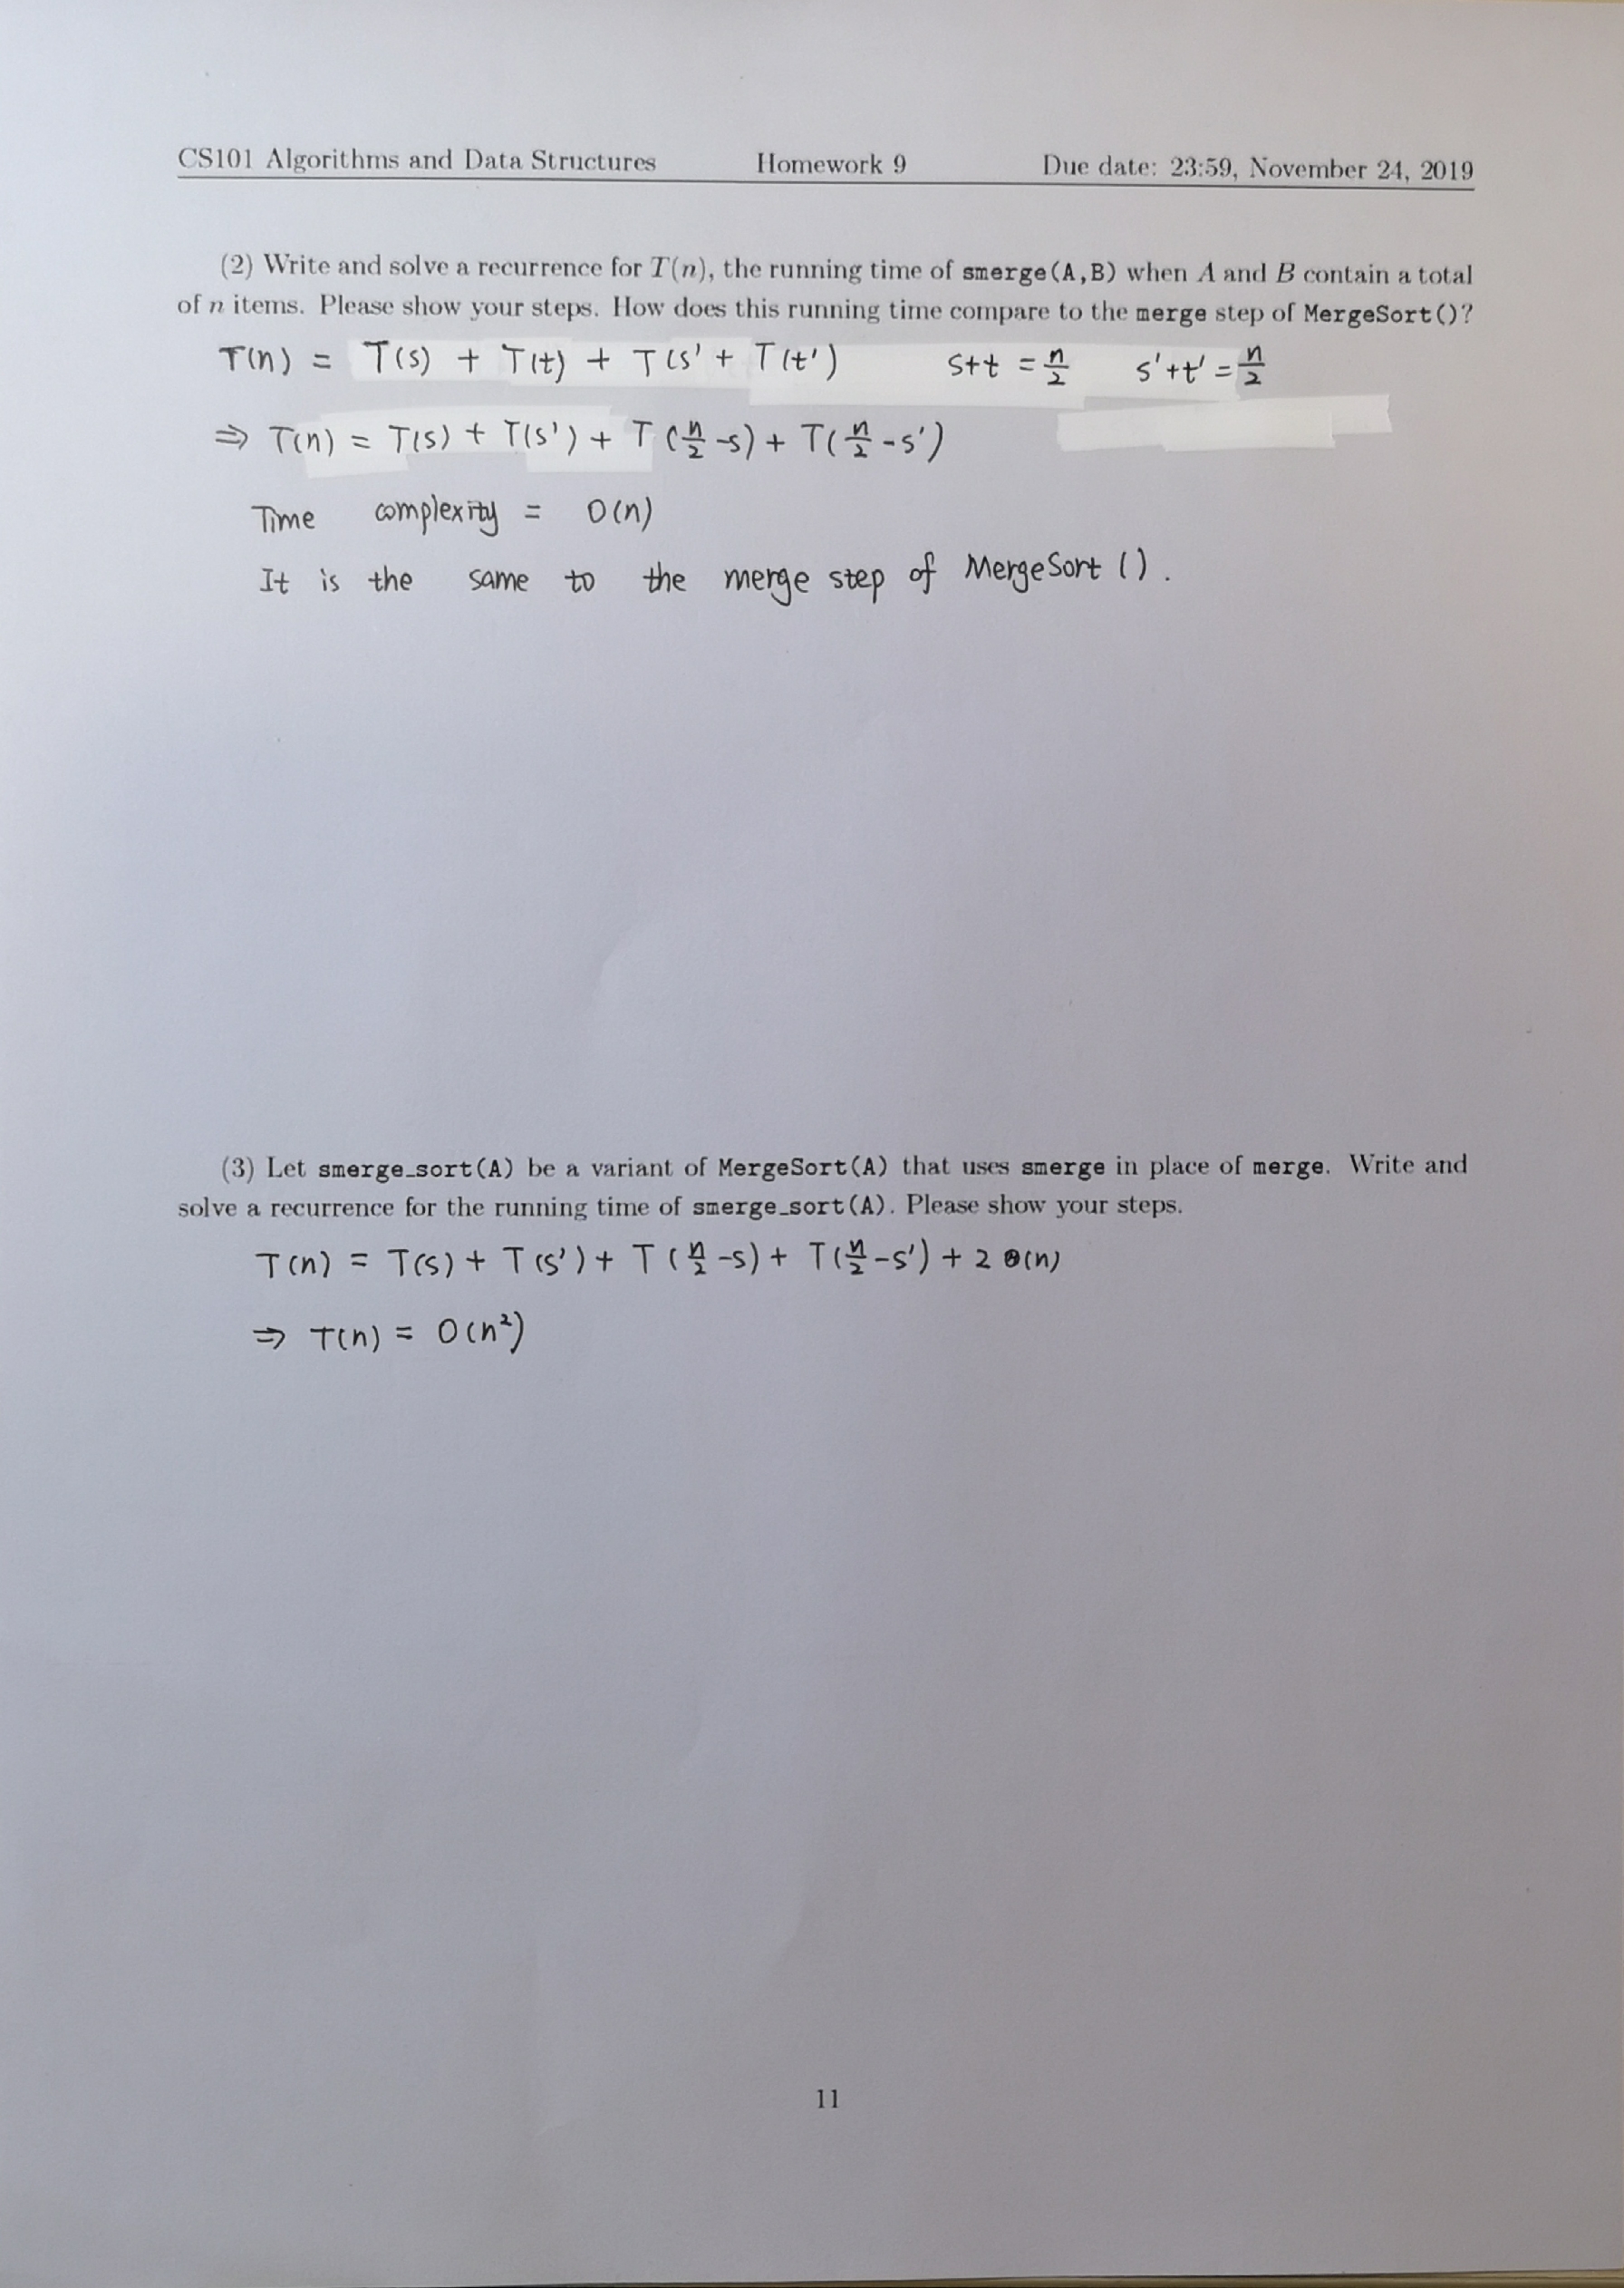 CS101 Algorithms and Data Structures Homework 9 Due date: 23:59, November 24, 2019
(2) Write and solve a recurrence for T(n), the running time of smerge(A,B) when A and B contain a total
of n items. Please show your steps. How does this running time compare to the merge step of MergeSort()?
T(n) = T(s) + T(t) + T(s' + T(t') s+t = n/2 s'+t' = n/2
⇒ T(n) = T(s) + T(s') + T(n/2 -s) + T(n/2 -s')
Time complexity = O(n)
It is the same to the merge step of MergeSort ().
(3) Let smerge_sort(A) be a variant of MergeSort(A) that uses smerge in place of merge. Write and
solve a recurrence for the running time of smerge_sort(A). Please show your steps.
T(n) = T(s) + T(s') + T(n/2 -s) + T(n/2 -s') + 2 Θ(n)
⇒ T(n) = O(n²)
11